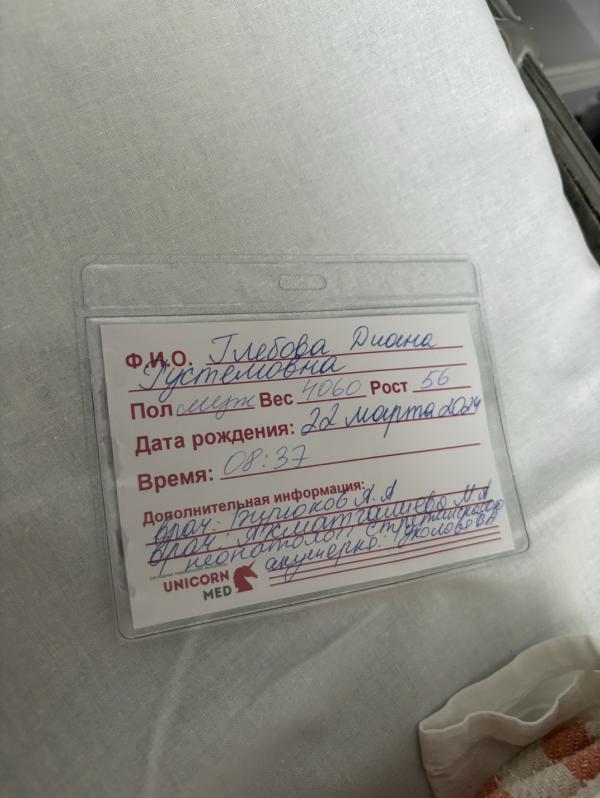 Ф.И.О. Глебова Диана
Рустемовна
Пол муж Вес 4060 Рост 56
Дата рождения: 22 марта 2024
Время: 08:37
Дополнительная информация:
врач: Бирюков А.А
врач: Ахматгалиева М А
неонатолог:
акушерка:
UNICORN
MED